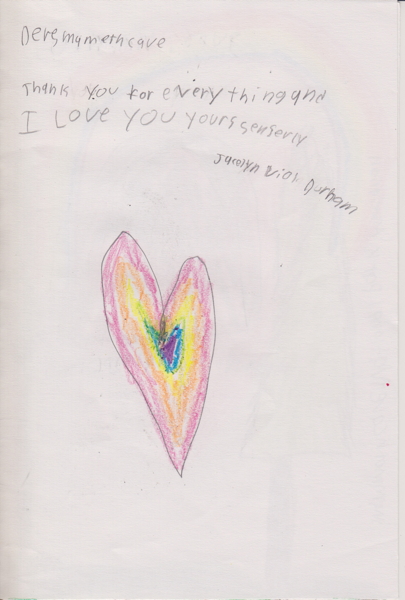 Dergmymethcave
Thank you for everything and
I LOVE YOU yours senserly
Jacolyn Viol Durham